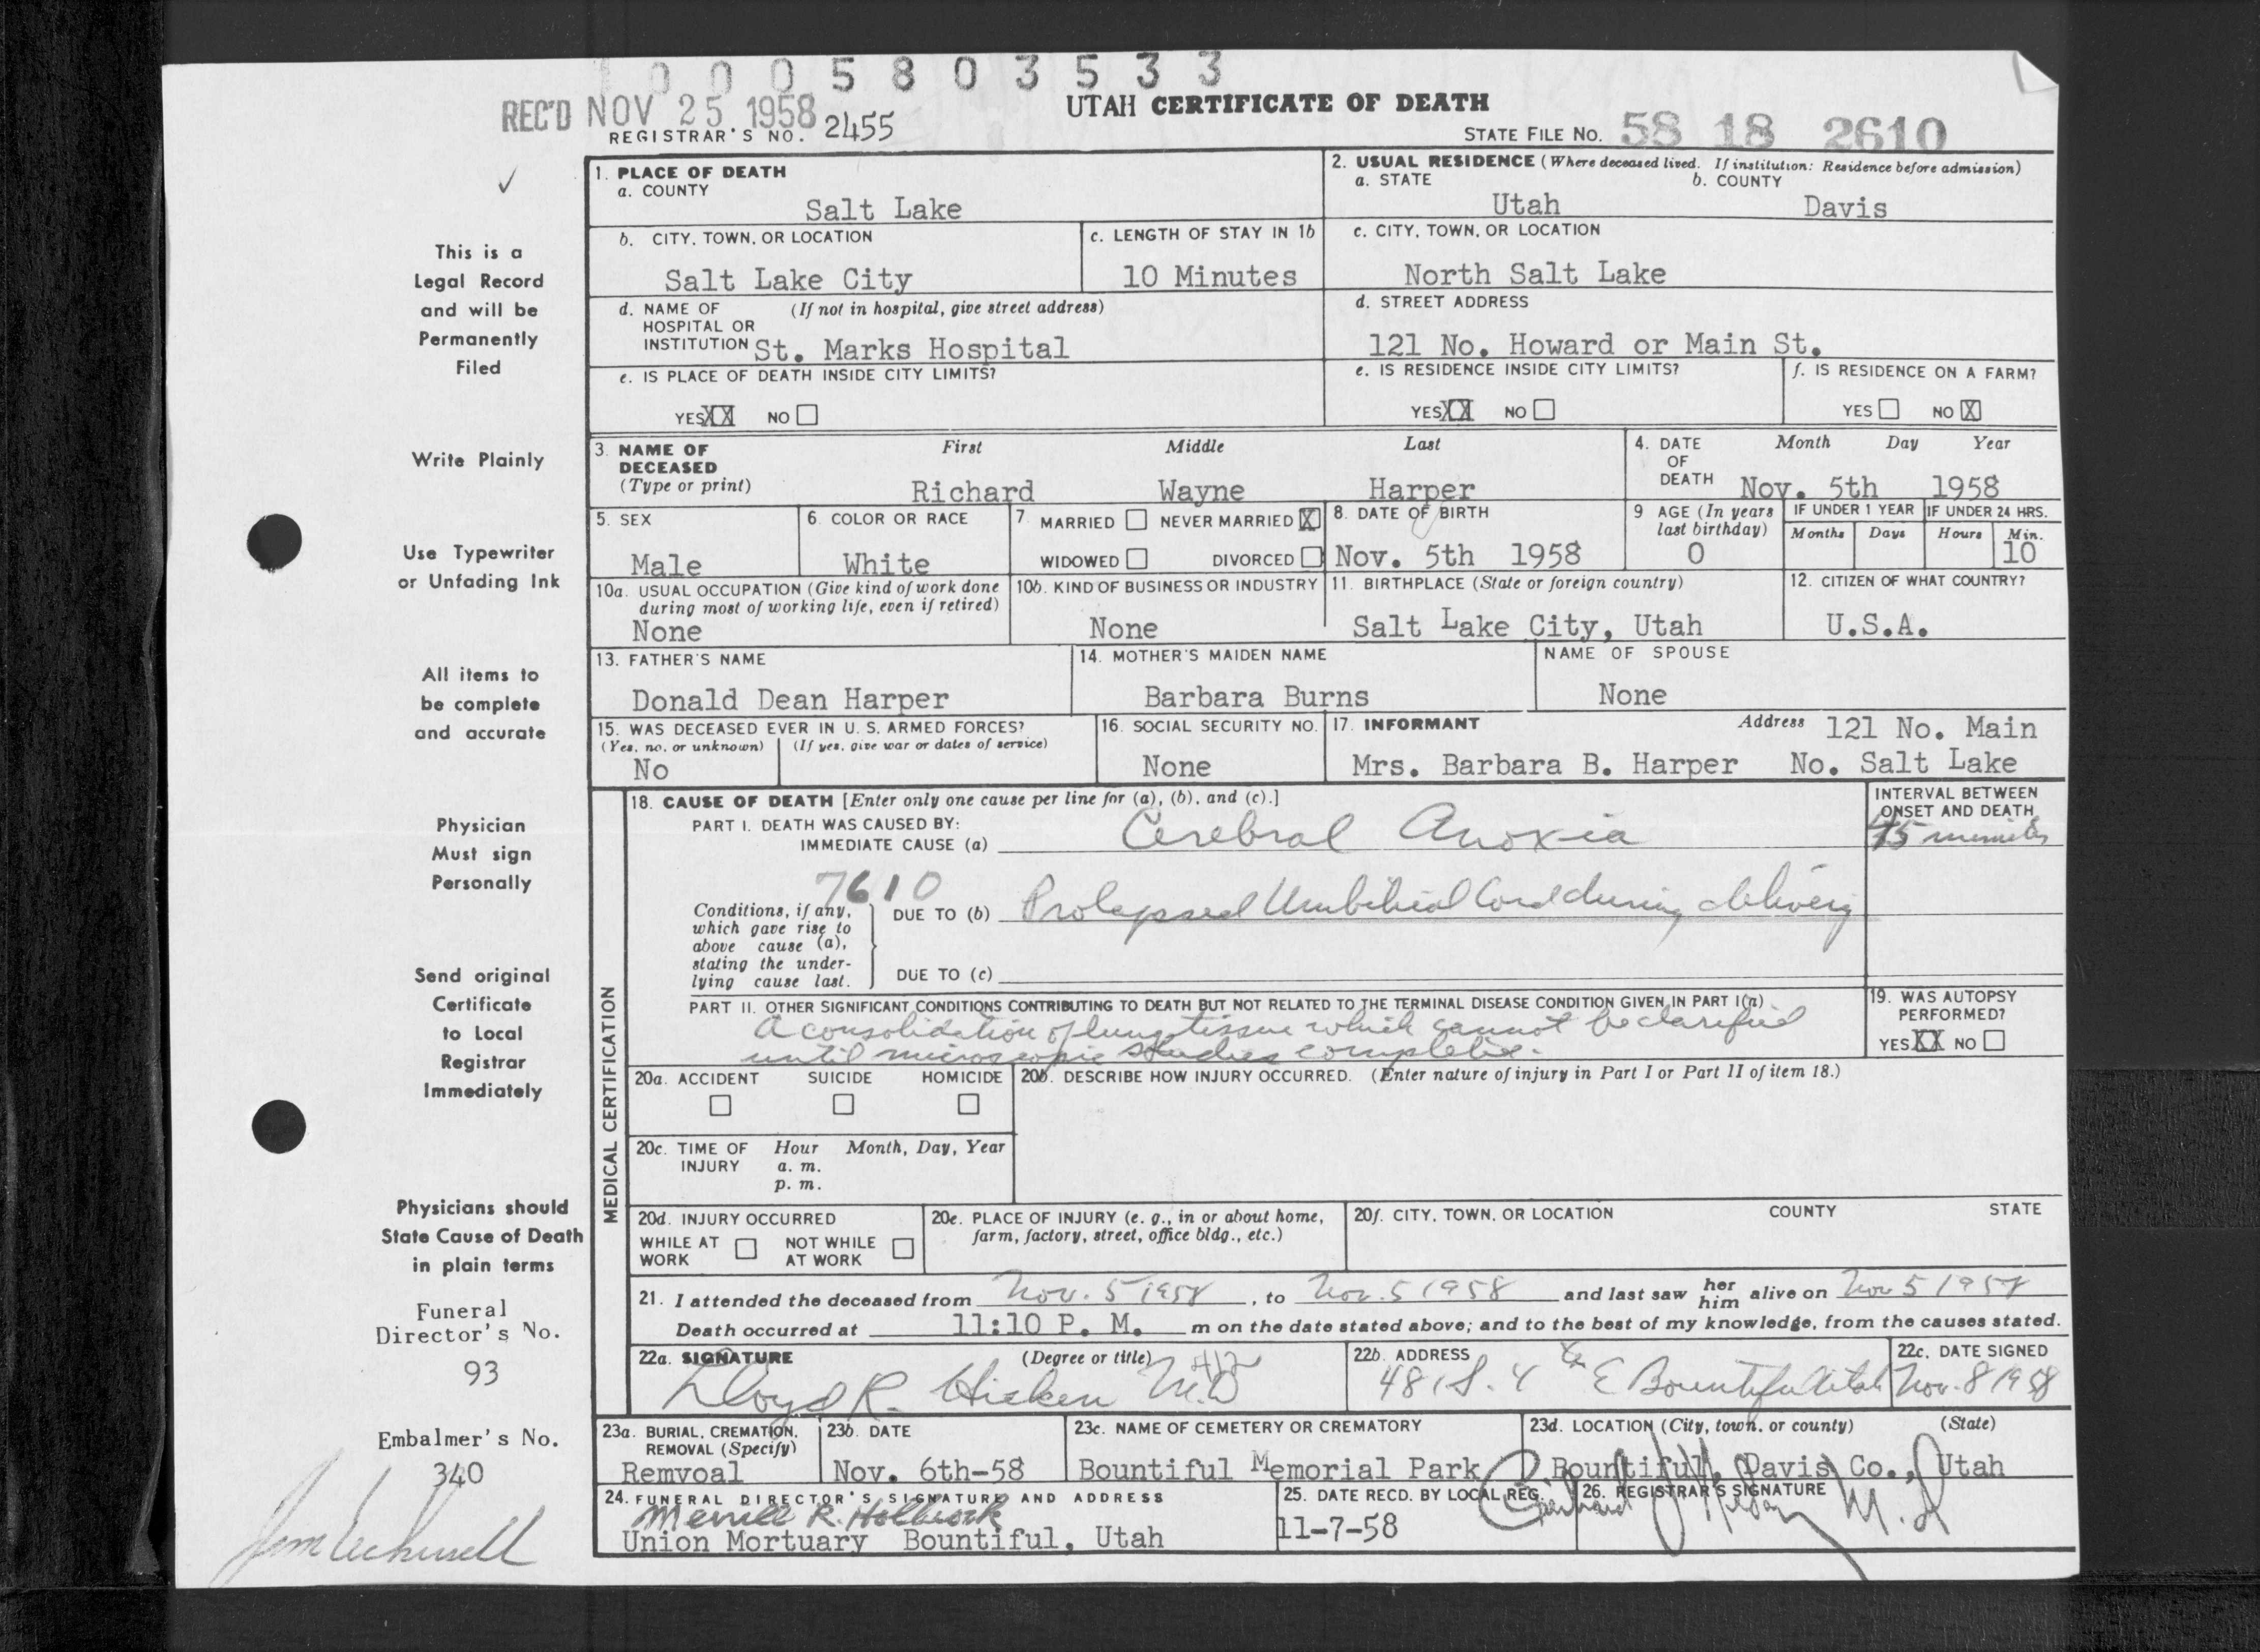 0 0 0 5 8 0 3 5 3 3
REC'D NOV 25 1958
UTAH CERTIFICATE OF DEATH
REGISTRAR'S NO. 2455
STATE FILE NO. 58 18 2610
This is a
Legal Record
and will be
Permanently
Filed
Write Plainly
Use Typewriter
or Unfading Ink
All items to
be complete
and accurate
Physician
Must sign
Personally
Send original
Certificate
to Local
Registrar
Immediately
Physicians should
State Cause of Death
in plain terms
Funeral
Director's No.
93
Embalmer's No.
340
1. PLACE OF DEATH
a. COUNTY
Salt Lake
2. USUAL RESIDENCE (Where deceased lived. If institution: Residence before admission)
a. STATE b. COUNTY
Utah Davis
b. CITY, TOWN, OR LOCATION
Salt Lake City
c. LENGTH OF STAY IN 1b
10 Minutes
c. CITY, TOWN, OR LOCATION
North Salt Lake
d. NAME OF (If not in hospital, give street address)
HOSPITAL OR
INSTITUTION St. Marks Hospital
d. STREET ADDRESS
121 No. Howard or Main St.
e. IS PLACE OF DEATH INSIDE CITY LIMITS?
YES XX NO
e. IS RESIDENCE INSIDE CITY LIMITS?
YES XX NO
f. IS RESIDENCE ON A FARM?
YES NO X
3. NAME OF DECEASED (Type or print)
First Middle Last
Richard Wayne Harper
4. DATE OF DEATH
Month Day Year
Nov. 5th 1958
5. SEX
Male
6. COLOR OR RACE
White
7. MARRIED NEVER MARRIED X
WIDOWED DIVORCED
8. DATE OF BIRTH
Nov. 5th 1958
9 AGE (In years last birthday)
0
IF UNDER 1 YEAR IF UNDER 24 HRS.
Months Days Hours Min.
10
10a. USUAL OCCUPATION (Give kind of work done
during most of working life, even if retired)
None
10b. KIND OF BUSINESS OR INDUSTRY
None
11. BIRTHPLACE (State or foreign country)
Salt Lake City, Utah
12. CITIZEN OF WHAT COUNTRY?
U.S.A.
13. FATHER'S NAME
Donald Dean Harper
14. MOTHER'S MAIDEN NAME
Barbara Burns
NAME OF SPOUSE
None
15. WAS DECEASED EVER IN U. S. ARMED FORCES?
(Yes, no, or unknown) (If yes, give war or dates of service)
No
16. SOCIAL SECURITY NO.
None
17. INFORMANT Address 121 No. Main
Mrs. Barbara B. Harper No. Salt Lake
MEDICAL CERTIFICATION
18. CAUSE OF DEATH [Enter only one cause per line for (a), (b), and (c).]
PART I. DEATH WAS CAUSED BY:
IMMEDIATE CAUSE (a) Cerebral Anoxia
INTERVAL BETWEEN
ONSET AND DEATH
minutes
7610
Conditions, if any,
which gave rise to
above cause (a),
stating the under-
lying cause last.
DUE TO (b) Prolapsed Umbilical Cord during delivery
DUE TO (c)
PART II. OTHER SIGNIFICANT CONDITIONS CONTRIBUTING TO DEATH BUT NOT RELATED TO THE TERMINAL DISEASE CONDITION GIVEN IN PART I(a)
A consolidation of lung tissue which cannot be clarified
until microscopic studies complete.
19. WAS AUTOPSY
PERFORMED?
YES XX NO
20a. ACCIDENT SUICIDE HOMICIDE
20b. DESCRIBE HOW INJURY OCCURRED. (Enter nature of injury in Part I or Part II of item 18.)
20c. TIME OF INJURY
Hour Month, Day, Year
a. m.
p. m.
20d. INJURY OCCURRED
WHILE AT WORK NOT WHILE AT WORK
20e. PLACE OF INJURY (e. g., in or about home,
farm, factory, street, office bldg., etc.)
20f. CITY, TOWN, OR LOCATION COUNTY STATE
21. I attended the deceased from Nov. 5 1958, to Nov. 5 1958 and last saw her him alive on Nov 5 1958
Death occurred at 11:10 P. M. m on the date stated above; and to the best of my knowledge, from the causes stated.
22a. SIGNATURE (Degree or title)
Lloyd R. Hicken M.D
22b. ADDRESS
48 S. 4 E Bountiful Utah
22c. DATE SIGNED
Nov. 8 1958
23a. BURIAL, CREMATION,
REMOVAL (Specify)
Remvoal
23b. DATE
Nov. 6th-58
23c. NAME OF CEMETERY OR CREMATORY
Bountiful Memorial Park
23d. LOCATION (City, town, or county) (State)
Bountiful, Davis Co., Utah
24. FUNERAL DIRECTOR'S SIGNATURE AND ADDRESS
Merrill R. Holbrook
Union Mortuary Bountiful, Utah
25. DATE RECD. BY LOCAL REG.
11-7-58
26. REGISTRAR'S SIGNATURE
M.D